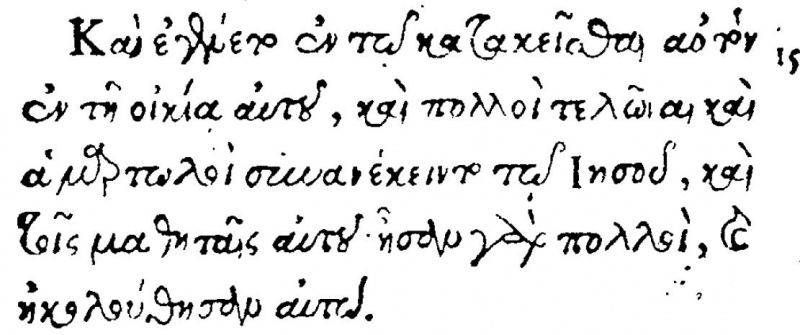 Καὶ ἐγένετο ἐν τῷ κατακεῖσθαι αὐτὸν 15
ἐν τῇ οἰκίᾳ αὐτοῦ, καὶ πολλοὶ τελῶναι καὶ
ἁμαρτωλοὶ συνανέκειντο τῷ Ιησοῦ, καὶ
τοῖς μαθηταῖς αὐτοῦ· ἦσαν γὰρ πολλοὶ, καὶ
ἠκολούθησαν αὐτῷ.